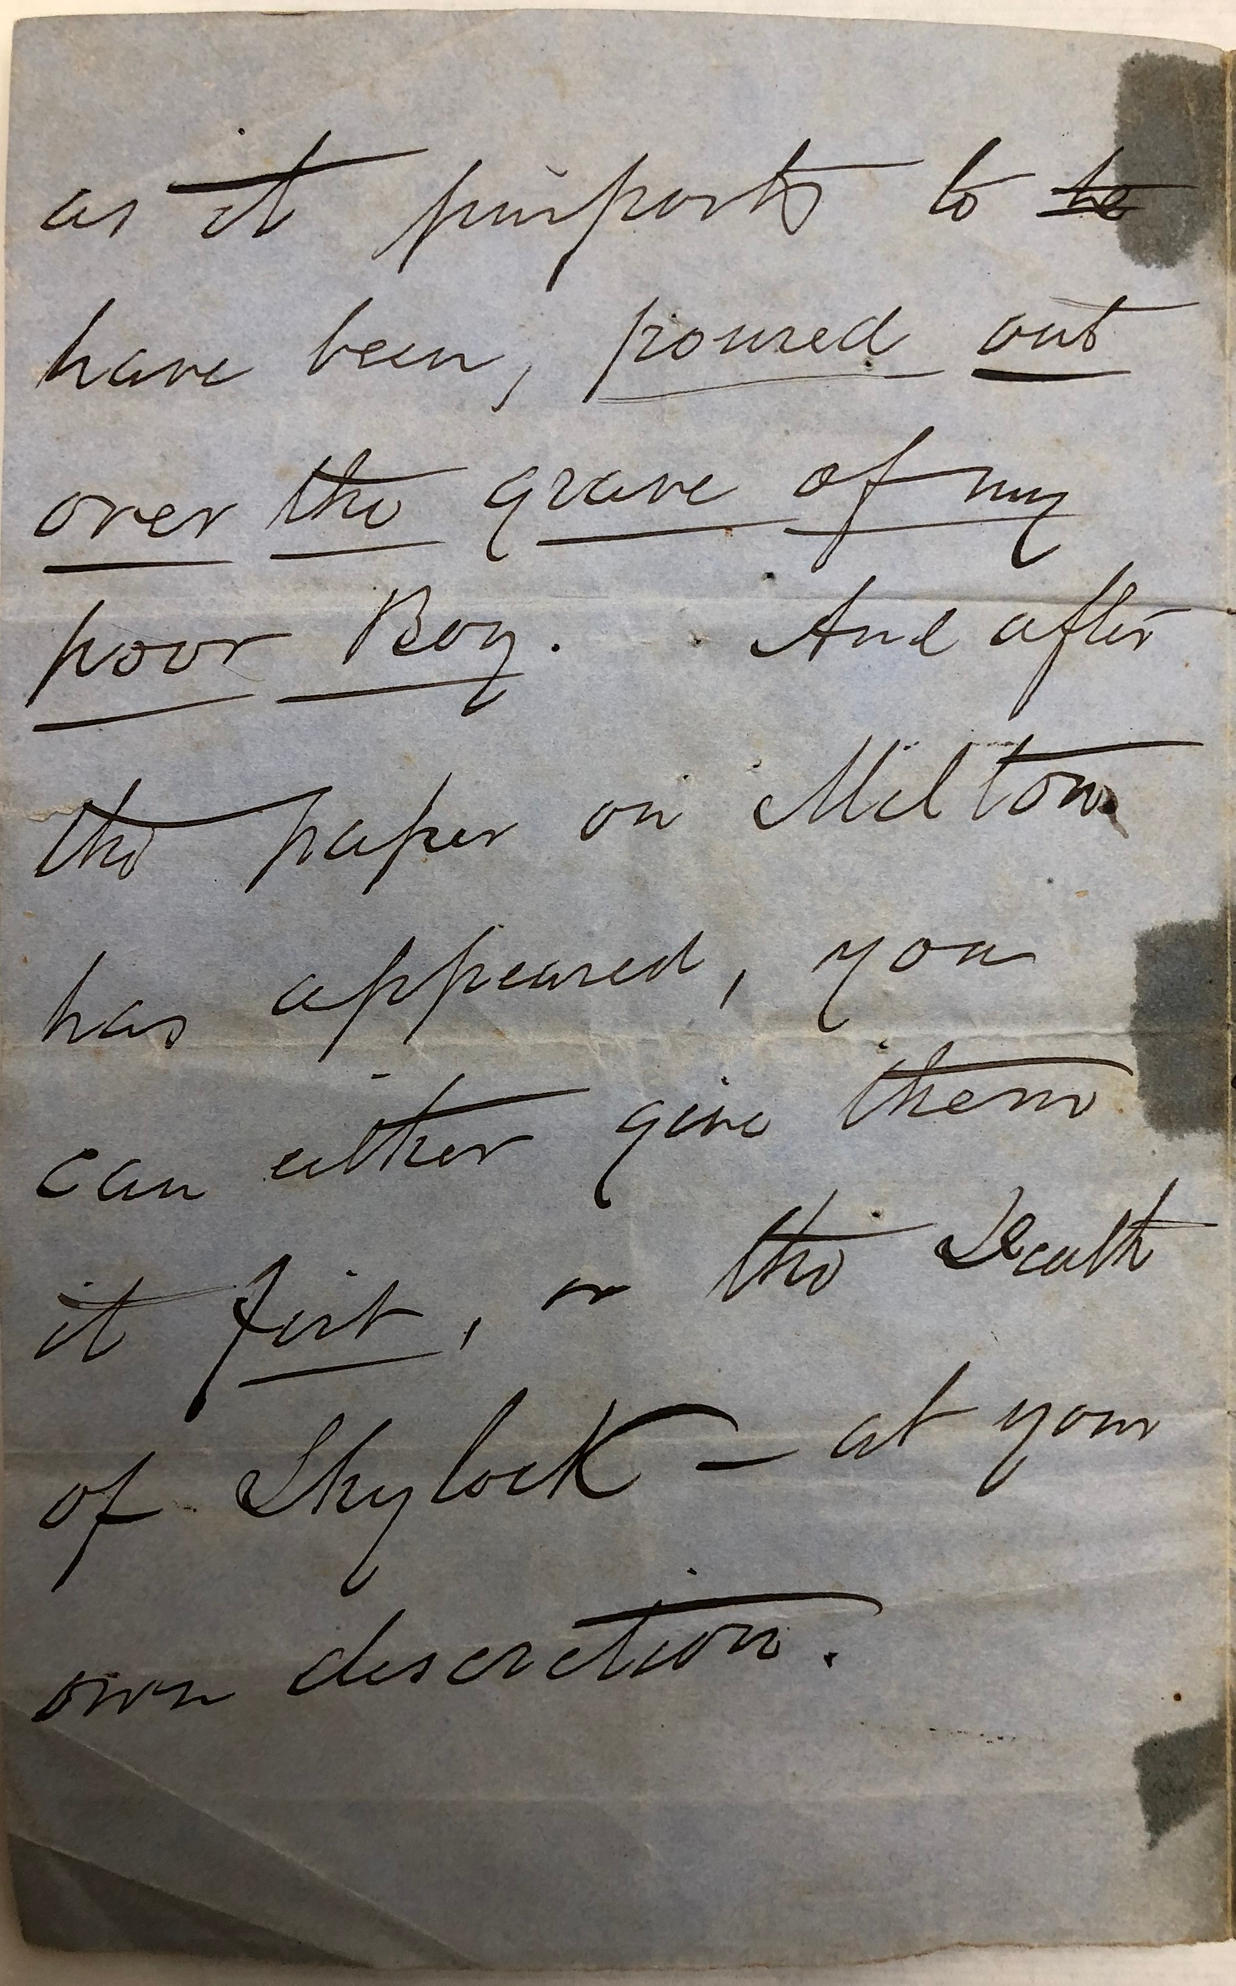 as it purports to to
have been, poured out
over the grave of my
poor Boy. And after
the paper on Milton
has appeared, you
can either give them
it first, or the Death
of Shylock – at your
own discretion.